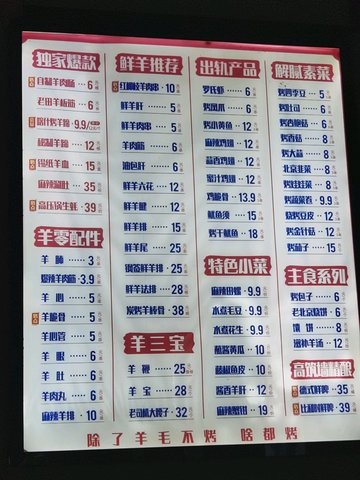 独家爆款
自制羊肉肠 ··· 6
老田羊板筋 ··· 6
喀什烤羊 9.9/
秘制羊 ··· 12
锡纸羊血 ··· 15
麻辣涮肚 ··· 35
高压锅羊蚝 ··· 39
羊零配件
羊 肺 ······ 3
爆辣羊肉筋 ··· 3.9
羊 心 ······ 5
羊脆骨 ······ 5
羊心管 ······ 5
羊 眼 ······ 6
羊 肚 ······ 6
羊肉丸 ······ 6
麻辣羊排 ··· 10
鲜羊推荐
红柳枝羊肉串 · 10
鲜羊肝 ······ 5
鲜羊肉串 ··· 5
羊肉筋 ······ 6
油包肝 ······ 6
鲜羊六花 ··· 12
鲜羊腱 ······ 12
鲜羊排 ······ 15
鲜羊尾 ······ 25
钢签鲜羊排 ··· 25
鲜羊法排 ··· 28
炭烤羊棒骨 ··· 38
羊三宝
羊 鞭 ······ 25
羊 宝 ······ 28
老司机大腰子 ··· 32
出轨产品
罗氏虾 ······ 6
烤凤爪 ······ 6
烤小黄鱼 ··· 12
麻辣鸡翅 ··· 12
蒜香鸡翅 ··· 12
蜜汁鸡翅 ··· 12
鸡脆骨 ··· 13.9
鱿鱼须 ··· 15
烤干鱿鱼 ··· 18
特色小菜
麻辣田螺 ··· 9.9
水煮毛豆 ··· 9.9
水煮花生 ··· 9.9
葱酱黄瓜 ··· 10
藤椒鱼皮 ··· 10
酱香羊肝 ··· 12
麻辣蟹钳 ··· 19
解腻素菜
烤四季豆 ··· 5
烤吐司 ······ 6
烤杏鲍菇 ··· 6
烤香菇 ······ 8
烤大蒜 ······ 8
北京韭菜 ··· 8
烤娃娃菜 ··· 8
烤蔬菜卷 ··· 9.9
烧烤豆皮 ··· 12
烤金针菇 ··· 12
烤茄子 ······ 15
主食系列
烤包子 ······ 6
老北京烧饼 ··· 6
馕 饼 ······ 8
滋补羊汤 ··· 12
高筑墙精酿
德式鲜啤 ··· 35
比利时鲜啤 ··· 39
除了羊毛不烤 啥都烤